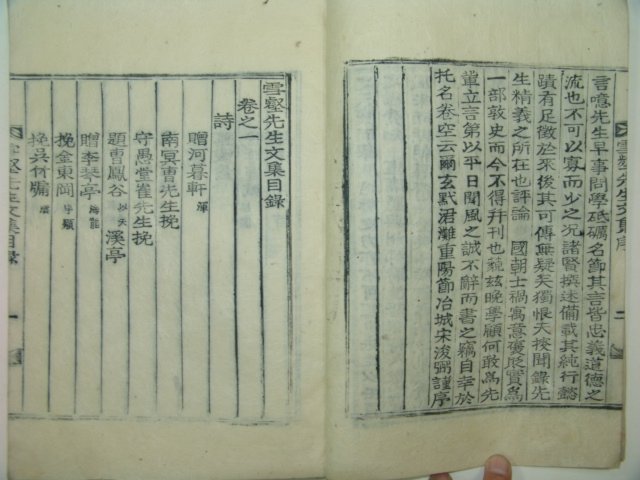 言噫先生早事問學砥礪名節其言皆忠義道德之
流也不可以寡而少之況諸賢撰述備載其純行懿
蹟有足徵於來後其可傳無疑矣獨恨天按聞錄先
生精義之所在也評論 國朝士禍寓意褒貶實為
一部敦史而今不得幷刊也藐玆晚學顧何敢為先
輩立言第以平日聞風之誠不辭而書之竊自幸於
托名卷空云爾玄黓君灘重陽節冶城宋浚弼謹序
雪壑先生文集序
二
雪壑先生文集目錄
卷之一
詩
贈河暮軒 渾
南冥曹先生挽
守愚堂崔先生挽
題曹鳳谷 以天 溪亭
贈李琴亭
挽金東岡 宇顒
雪壑先生文集目錄
一